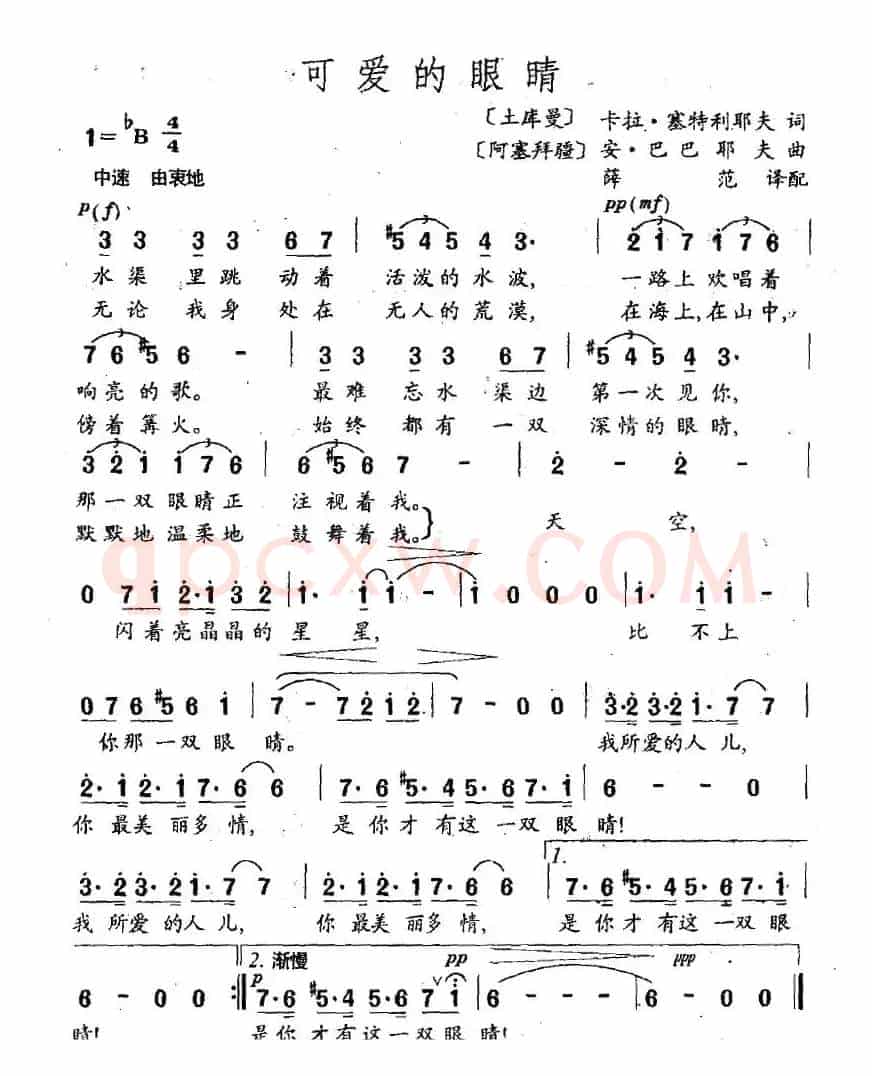 可爱的眼睛
1=♭B 4/4
〔土库曼〕 卡拉·塞特利耶夫 词
〔阿塞拜疆〕 安·巴巴耶夫 曲
中速 由衷地
薛 范 译配
p(f)
pp(mf)
3 3 3 3 6 7 | #5 4 5 4 3· | 2 1 7 1 7 6
水渠 里跳 动着 活泼的水波, 一路上欢唱着
无论 我身 处在 无人的荒漠, 在海上,在山中,
7 6 #5 6 - | 3 3 3 3 6 7 | #5 4 5 4 3· |
响亮的歌。 最难 忘水 渠边 第一次见你,
傍着篝火。 始终 都有 一双 深情的眼睛,
3 2 1 1 7 6 | 6 #5 6 7 - | 2 - 2 - |
那一双眼睛正 注视着我。
默默地温柔地 鼓舞着我。} 天 空,
qpcxw.COM
0 7 1 2·1 3 2 | 1· 1 1 - | 1 0 0 0 | 1· 1 1 - |
闪着亮晶晶的星 星, 比 不上
0 7 6 #5 6 1 | 7 - 7 2 1 2 | 7 - 0 0 | 3·2 3·2 1·7 7 |
你那一双眼 睛。 我所爱的人儿,
2·1 2·1 7·6 6 | 7·6 #5·4 5·6 7·1 | 6 - - 0 |
你最美丽多情, 是你才有这一双眼 睛!
1.
3·2 3·2 1·7 7 | 2·1 2·1 7·6 6 | 7·6 #5·4 5·6 7·1 |
我所爱的人儿, 你最美丽多情, 是你才有这一双眼
2. 渐慢 pp ppp
p
6 - 0 0 :‖ 7·6 #5·4 5·6 7 1 | 6 - - - | 6 - 0 0 ‖
睛! 是你才有这一双眼 睛!